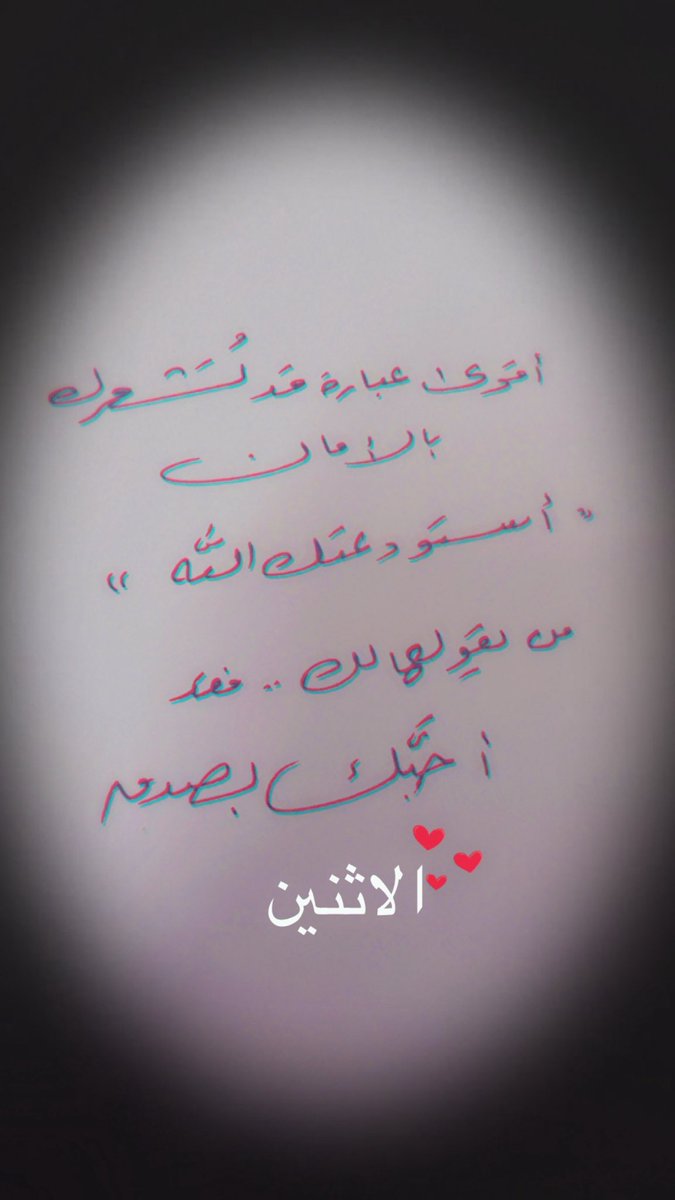 أقوى عبارة قد تُشعرك
بالأمان
" أستودعتك اللّه "
من يقولها لك .. فقد
أحبَّك بصدق
الاثنين